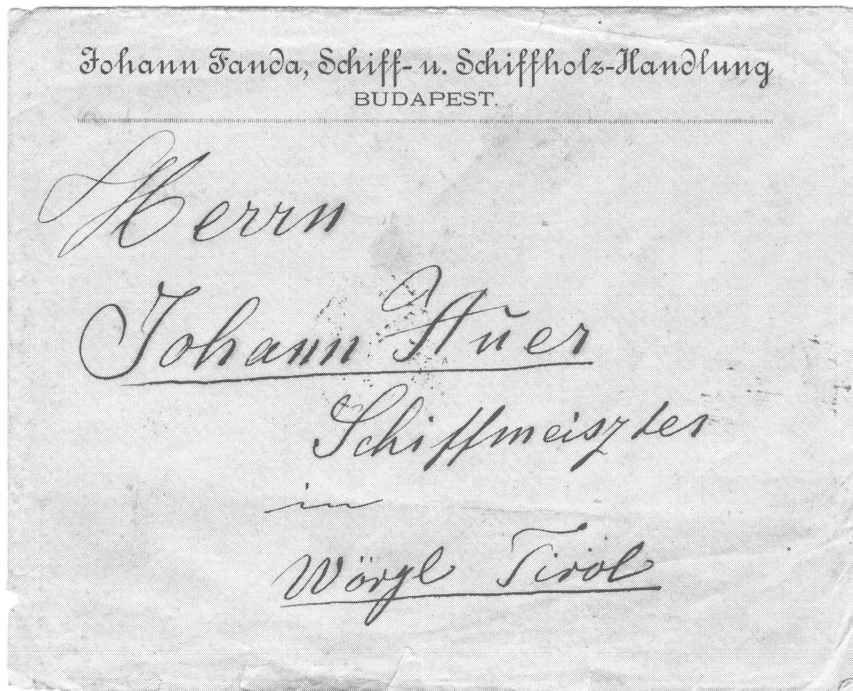 Johann Fanda, Schiff- u. Schiffholz-Handlung
BUDAPEST.
Herrn
Johann Auer
Schiffmeiszter
in
Wörgl Tirol